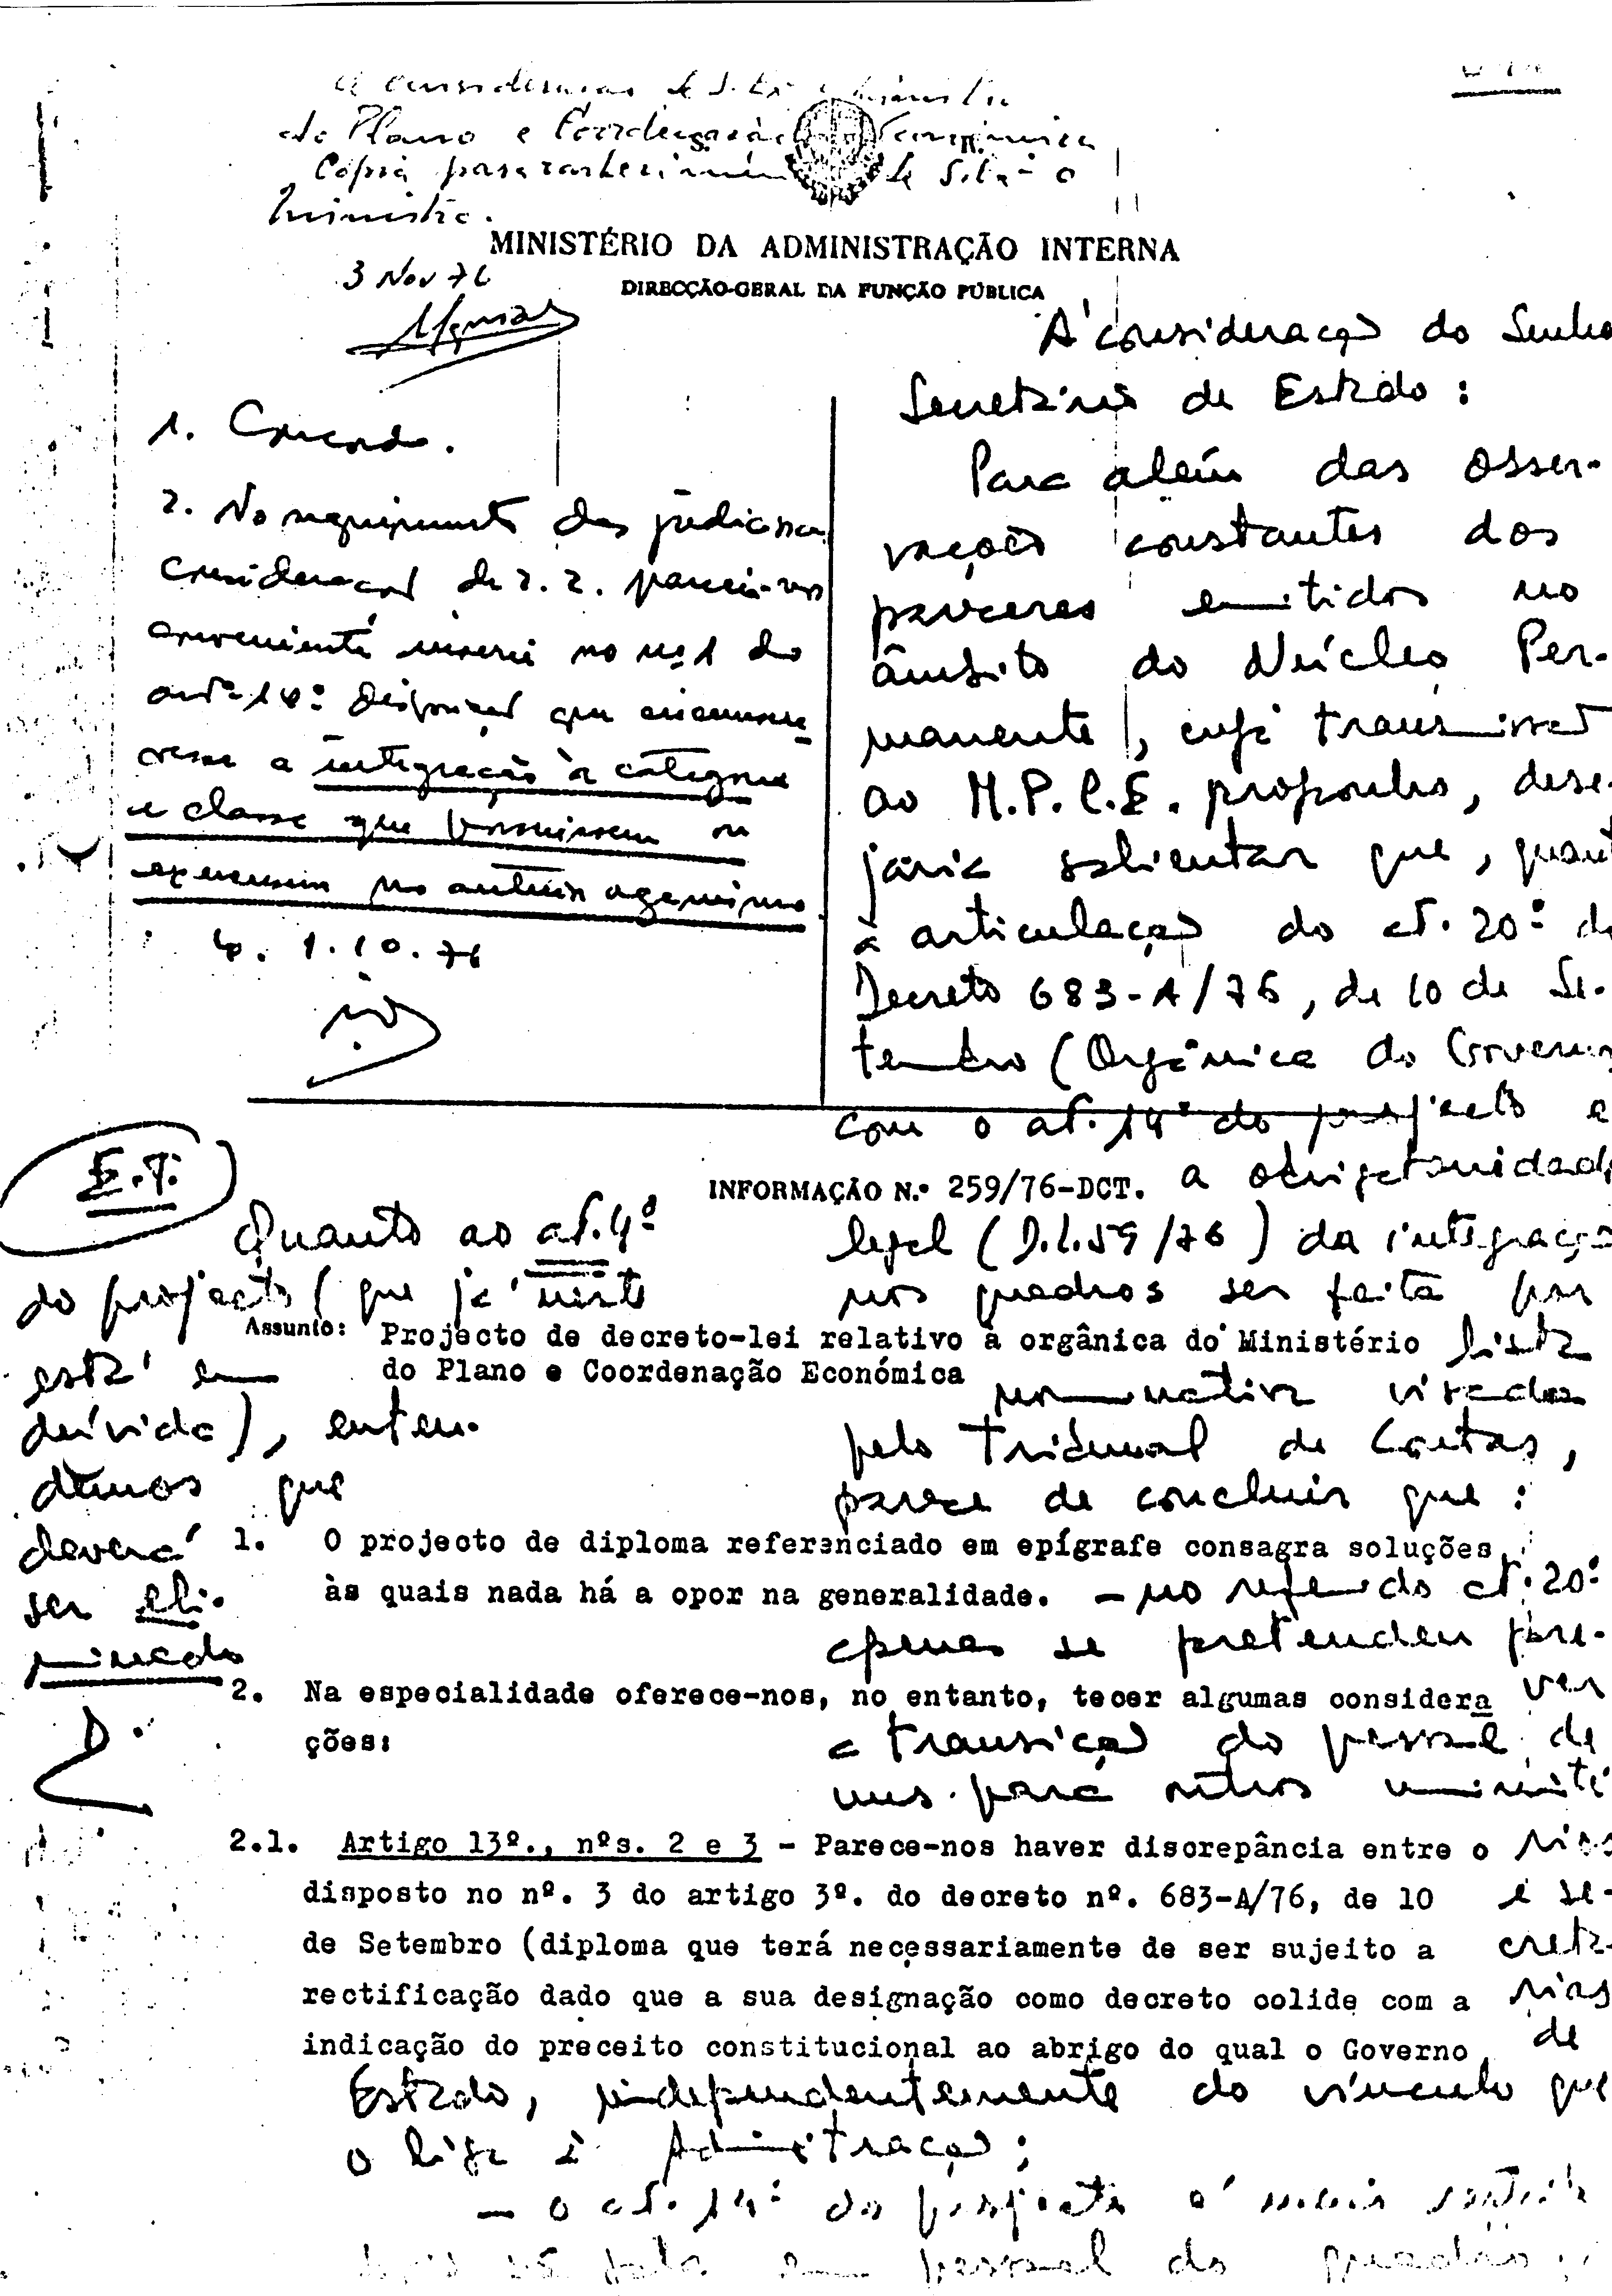 À consideração de S. Ex. o Ministro
do Plano e Coordenação Económica
Cópia para conhecimento de S. Ex. o
Ministro.
MINISTÉRIO DA ADMINISTRAÇÃO INTERNA
3 Nov 76
DIRECÇÃO-GERAL DA FUNÇÃO PÚBLICA
1. Concordo.
2. No seguimento das judiciosas
considerações de 2.2. parecia-nos
conveniente inserir no nº 1 do
artº 14º disposição que
a integração à categoria
e classe que possuíssem ou
exerciam no antecedente
1.10.76
À consideração do Senhor
Secretário de Estado:
Para além das obser-
vações constantes dos
pareceres emitidos no
âmbito do Núcleo Per-
manente, cuja transmissão
ao M.P.C.E. proponho, dese-
jaria salientar que, quanto
à articulação do art. 20º do
Decreto 683-A/76, de 10 de Se-
tembro (Orgânica do Governo)
com o art. 14º do projecto e
a obrigatoriedade
legal (D.L. 59/76) da integração
nos quadros ser feita por
lista
nominativa visada
pelo Tribunal de Contas,
parece de concluir que:
- no referido art. 20º
apenas se pretendeu pre-
ver
a transição do pessoal de
uns para outros ministé
rios
e se-
creta-
rias
de
Estado, independentemente do vínculo que
o liga à Administração;
- o art. 14º do projecto é mais
pessoal do quadro
E.T.
Quanto ao art. 4º
do projecto (que já neste
está em
dúvida), enten-
demos que
deverá
ser eli-
minado
INFORMAÇÃO N.º 259/76-DCT.
Assunto: Projecto de decreto-lei relativo à orgânica do Ministério
do Plano e Coordenação Económica
1. O projecto de diploma referenciado em epígrafe consagra soluções
às quais nada há a opor na generalidade.
2. Na especialidade oferece-nos, no entanto, tecer algumas considera
ções:
2.1. Artigo 13º., nºs. 2 e 3 - Parece-nos haver discrepância entre o
disposto no nº. 3 do artigo 3º. do decreto nº. 683-A/76, de 10
de Setembro (diploma que terá necessariamente de ser sujeito a
rectificação dado que a sua designação como decreto colide com a
indicação do preceito constitucional ao abrigo do qual o Governo